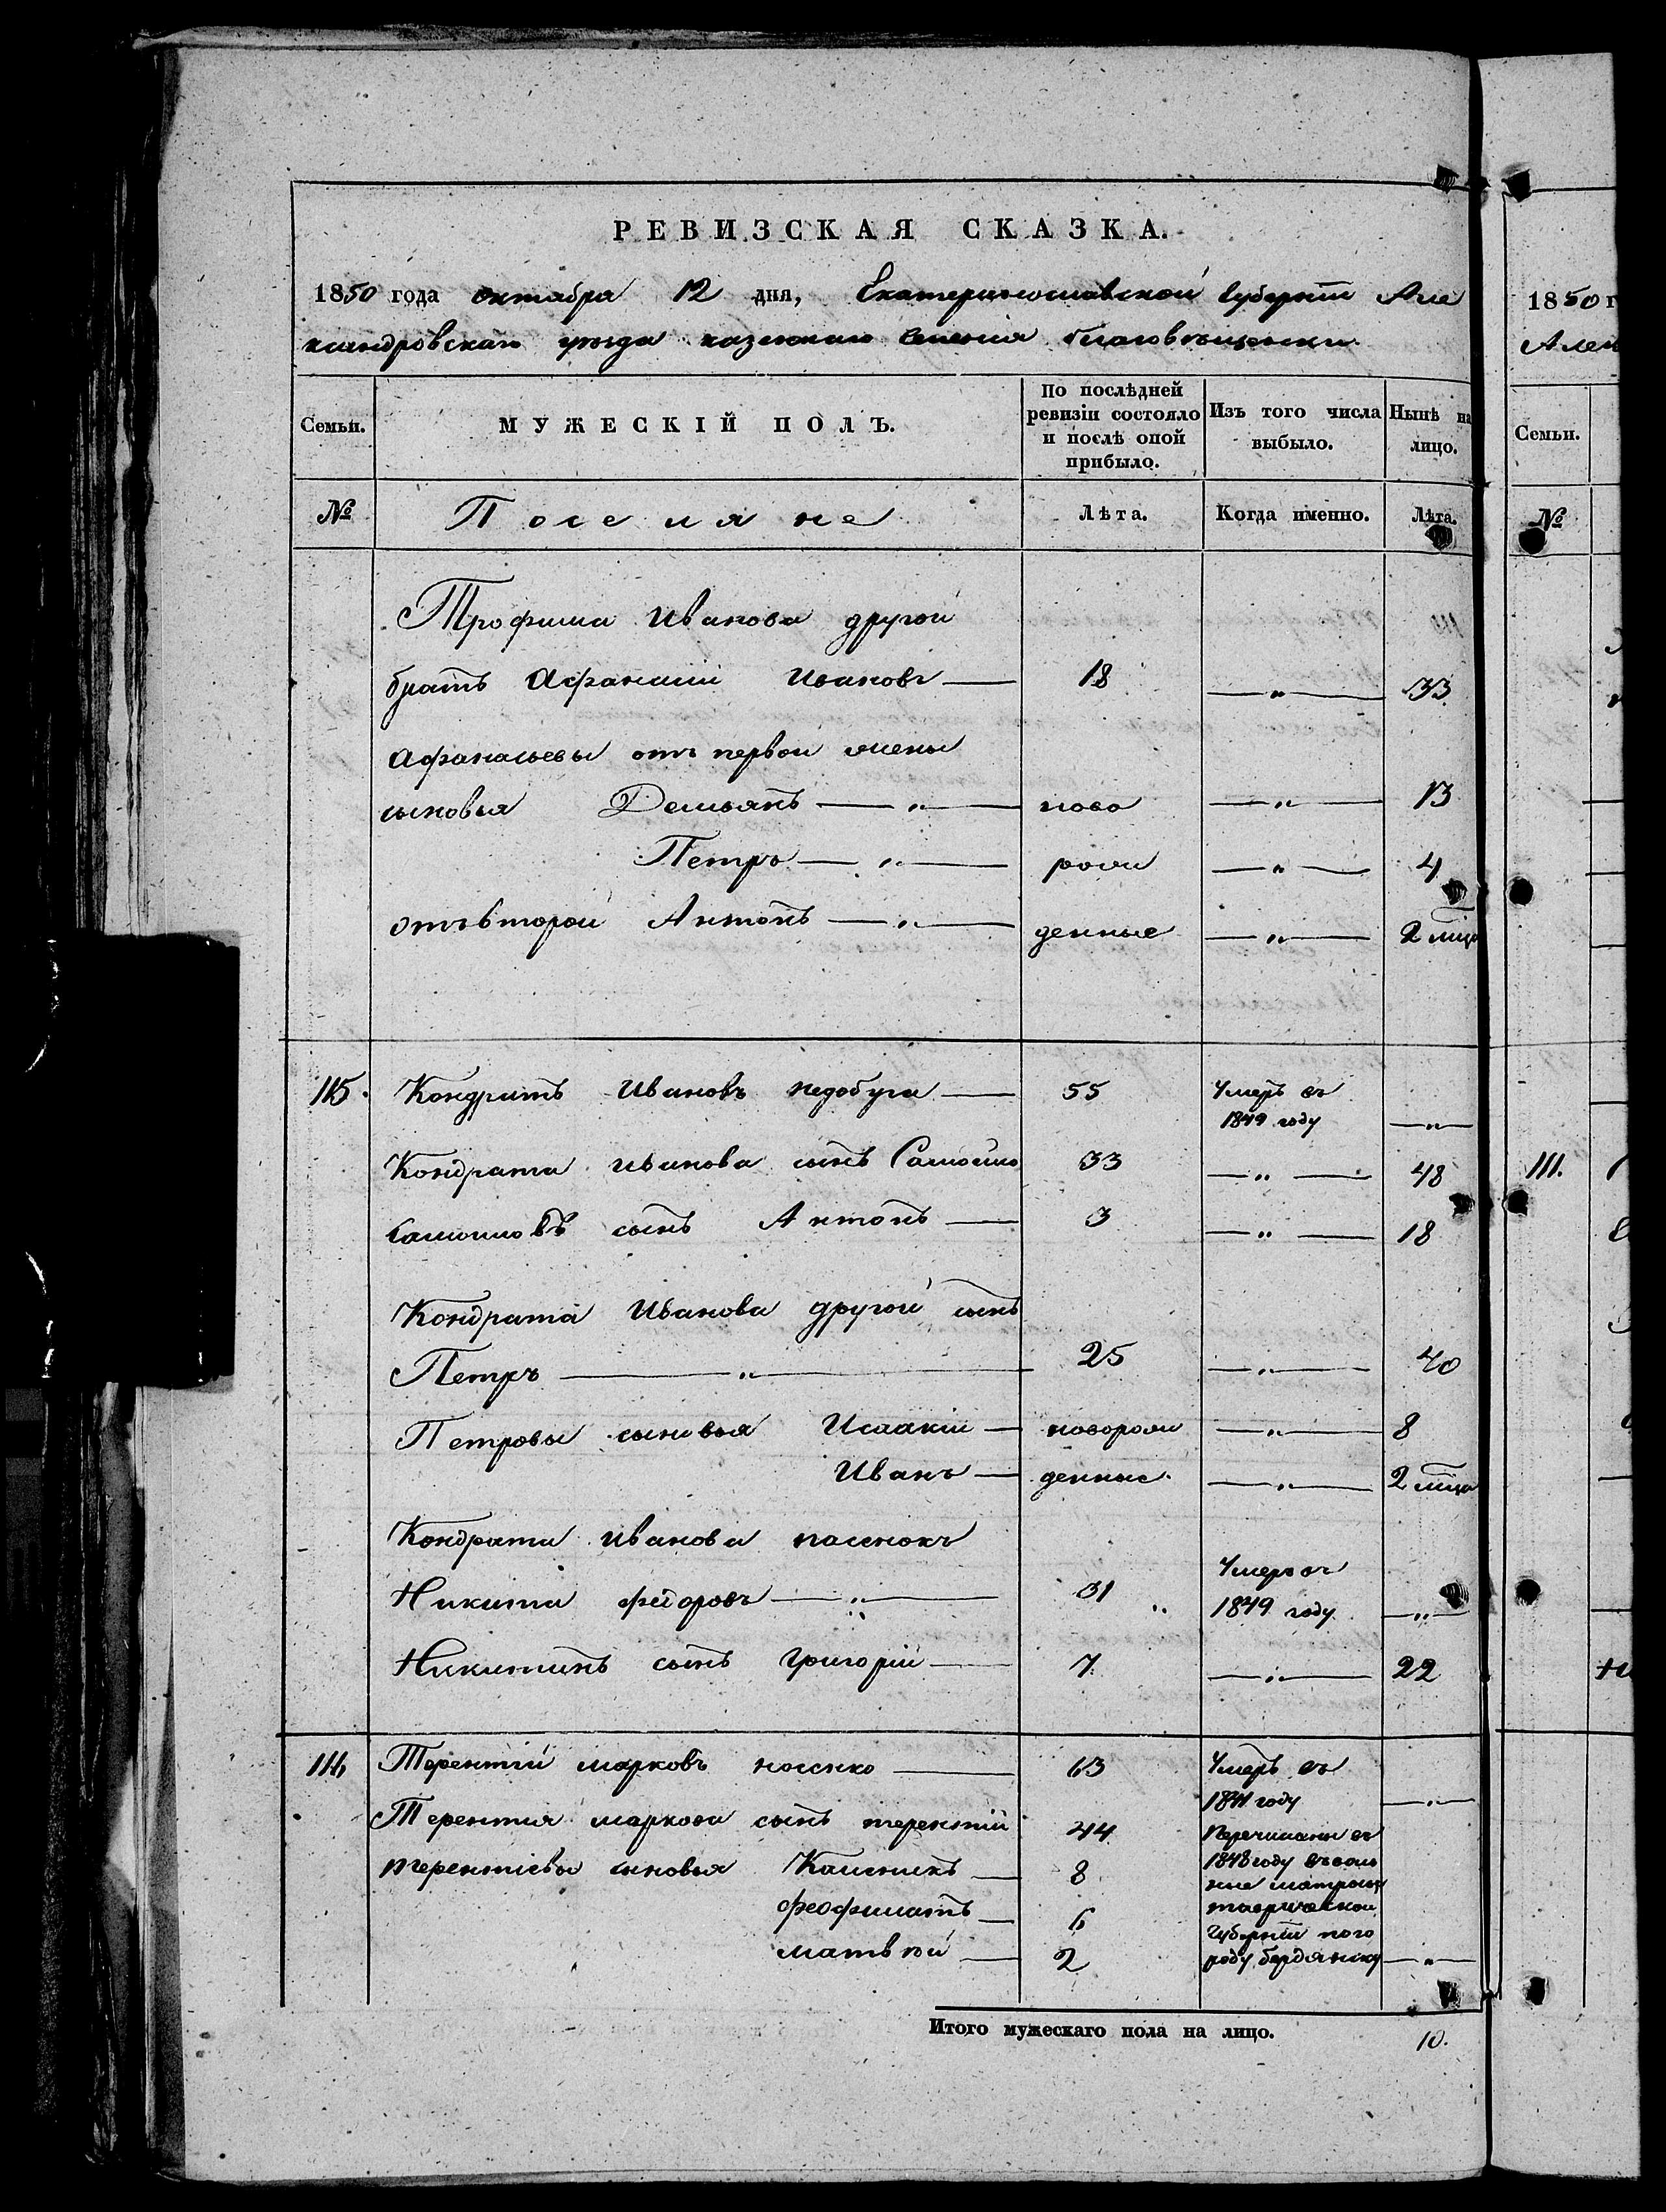 РЕВИЗСКАЯ СКАЗКА.
1850 года октября 12 дня, Екатеринославской Губерніи Але
ксандровскаго уезда казеннаго Селенія благовѣщенки
Семьи. МУЖЕСКІЙ ПОЛЪ. По послѣдней ревизіи состояло и послѣ оной прибыло. Изъ того числа выбыло. Нынѣ на лицо.
№ Поселяне Лѣта. Когда именно. Лѣта.
Трофима Иванова другой
братъ Афанасій Ивановъ 18 — „ — 33
Афанасьевы отъ первой жены
сыновья Демьянъ — „ — ново — „ — 13
Петръ — „ — рож — „ — 4
отъ второй Антонъ — „ — денные — „ — 2 мца
115. Кондратъ Ивановъ недобуга 55 Умеръ въ
1849 году — „ —
Кондрата Иванова сынъ Самойло 33 — „ — 48
Самойловъ сынъ Антонъ 3 — „ — 18
Кондрата Иванова другой сынъ
Петръ — „ — 25 — „ — 40
Петровы сыновья Исаакій новорож — „ — 8
Иванъ денные. — „ — 2 мца
Кондрата Иванова пасенокъ
Никита федоровъ — „ — 31 „ Умеръ въ
1849 году — „ —
Никитинъ сынъ Григорій 7. — „ — 22
116 Терентій марковъ носенко 63 Умеръ въ
1841 году — „ —
Терентія маркова сынъ терентій 44 Перечислены въ
терентіевы сыновья Каленикъ 8 1848 году въ воль
ные матросы
феофилактъ 6 таврической
Губерніи пого
матвѣй 2 роду бердянску — „ —
Итого мужескаго пола на лицо. 10.
1850 г
Алек
Семьи.
№
111.